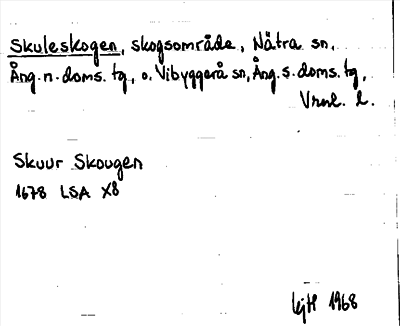 Skuleskogen, skogsområde, Nätra sn,
Ång. n. doms. tg, o. Vibyggerå sn, Ång. s. doms. tg,
Vrnl. l.
Skuur Skougen
1678 LSA X8
1968